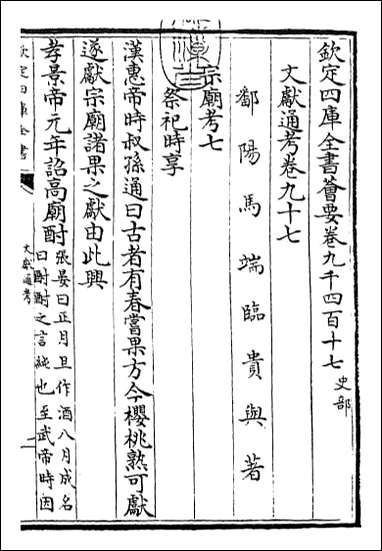 欽定四庫全書薈要卷九千四百十七 史部
文獻通考卷九十七
鄱陽馬端臨貴與著
宗廟考七
祭祀時享
漢惠帝時叔孫通曰古者有春嘗果方今櫻桃熟可獻
遂獻宗廟諸果之獻由此興
孝景帝元年詔高廟酎
張晏曰正月旦作酒八月成名
曰酎酎之言純也至武帝時因
欽定四庫全書
文獻通考